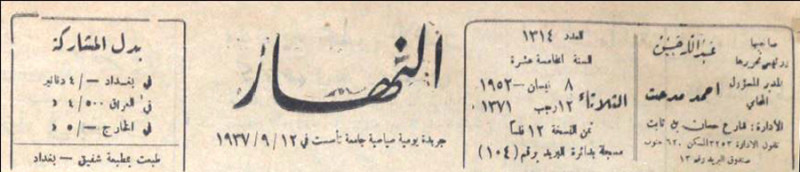 صاحبها
ورئيس تحريرها
عبدالله حسن
المدير المسؤول
المحامي
احمد مدحت
الأدارة: شارع حسان بن ثابت
تلفون الادارة ٣٢٥٣ السكن ٦٢٠ جنوب
صندوق البريد رقم ١٣
العدد ١٣١٤
السنة الخامسة عشرة
الثلاثاء
٨ نيسان — ١٩٥٢
١٢ رجب ١٣٧١
ثمن النسخة ١٢ فلساً
مسجلة بدائرة البريد برقم (١٠٤)
النهار
جريدة يومية سياسية جامعة تأسست في ١٩٣٧/٩/١٢
بدل المشاركة
في بغداد —/٤ دنانير
في العراق ٤/٥٠٠ د
في الخارج —/٥ د
طبعت بمطبعة شفيق — بغداد